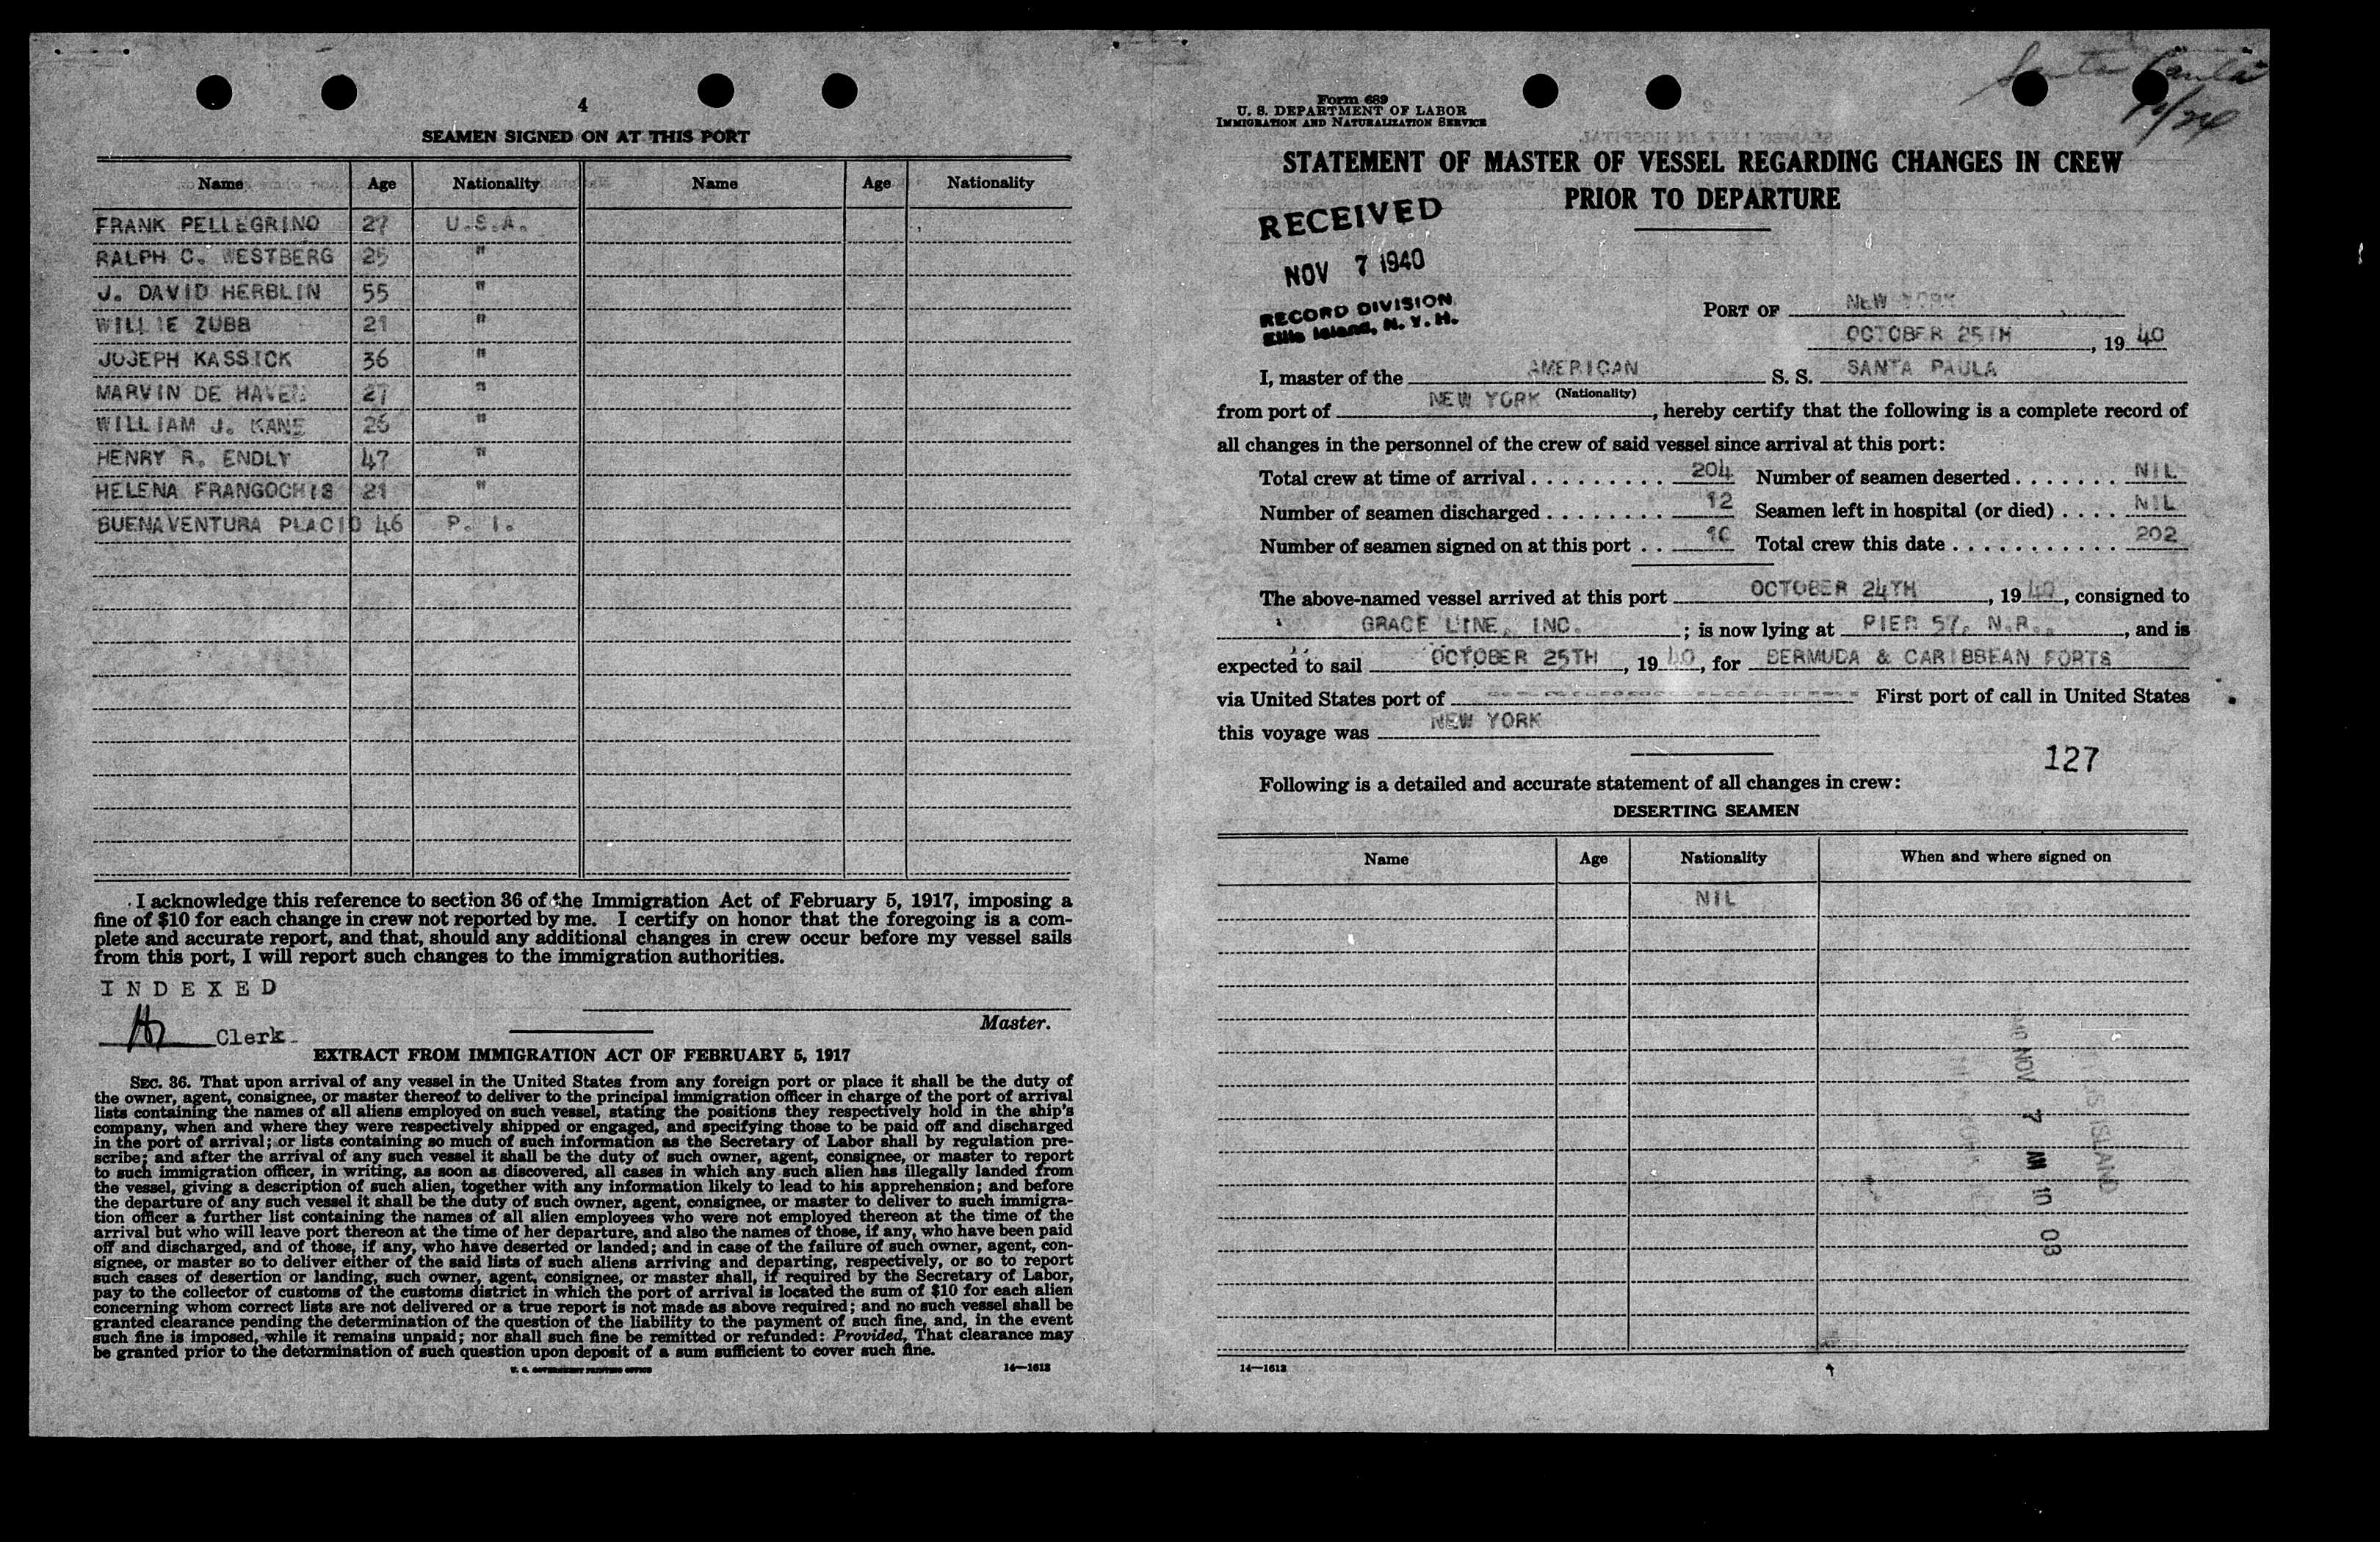 4
SEAMEN SIGNED ON AT THIS PORT
Name Age Nationality Name Age Nationality
FRANK PELLEGRINO 27 U.S.A.
RALPH C. WESTBERG 25 "
J. DAVID HERBLIN 55 "
WILLIE ZUBB 21 "
JOSEPH KASSICK 36 "
MARVIN DE HAVEN 27 "
WILLIAM J. KANE 26 "
HENRY R. ENDLY 47 "
HELENA FRANGOCHIS 21 "
BUENAVENTURA PLACID 46 P. I.
I acknowledge this reference to section 36 of the Immigration Act of February 5, 1917, imposing a
fine of $10 for each change in crew not reported by me. I certify on honor that the foregoing is a com-
plete and accurate report, and that, should any additional changes in crew occur before my vessel sails
from this port, I will report such changes to the immigration authorities.
INDEXED
Clerk
Master.
EXTRACT FROM IMMIGRATION ACT OF FEBRUARY 5, 1917
SEC. 36. That upon arrival of any vessel in the United States from any foreign port or place it shall be the duty of
the owner, agent, consignee, or master thereof to deliver to the principal immigration officer in charge of the port of arrival
lists containing the names of all aliens employed on such vessel, stating the positions they respectively hold in the ship's
company, when and where they were respectively shipped or engaged, and specifying those to be paid off and discharged
in the port of arrival; or lists containing so much of such information as the Secretary of Labor shall by regulation pre-
scribe; and after the arrival of any such vessel it shall be the duty of such owner, agent, consignee, or master to report
to such immigration officer, in writing, as soon as discovered, all cases in which any such alien has illegally landed from
the vessel, giving a description of such alien, together with any information likely to lead to his apprehension; and before
the departure of any such vessel it shall be the duty of such owner, agent, consignee, or master to deliver to such immigra-
tion officer a further list containing the names of all alien employees who were not employed thereon at the time of the
arrival but who will leave port thereon at the time of her departure, and also the names of those, if any, who have been paid
off and discharged, and of those, if any, who have deserted or landed; and in case of the failure of such owner, agent, con-
signee, or master so to deliver either of the said lists of such aliens arriving and departing, respectively, or so to report
such cases of desertion or landing, such owner, agent, consignee, or master shall, if required by the Secretary of Labor,
pay to the collector of customs of the customs district in which the port of arrival is located the sum of $10 for each alien
concerning whom correct lists are not delivered or a true report is not made as above required; and no such vessel shall be
granted clearance pending the determination of the question of the liability to the payment of such fine, and, in the event
such fine is imposed, while it remains unpaid; nor shall such fine be remitted or refunded: Provided, That clearance may
be granted prior to the determination of such question upon deposit of a sum sufficient to cover such fine.
U. S. GOVERNMENT PRINTING OFFICE 14—1613
Santa Paula
10/24
Form 689
U. S. DEPARTMENT OF LABOR
IMMIGRATION AND NATURALIZATION SERVICE
STATEMENT OF MASTER OF VESSEL REGARDING CHANGES IN CREW
PRIOR TO DEPARTURE
RECEIVED
NOV 7 1940
RECORD DIVISION
Ellis Island, N. Y. H.
PORT OF NEW YORK
OCTOBER 25TH, 19 40
I, master of the AMERICAN S. S. SANTA PAULA
(Nationality)
from port of NEW YORK, hereby certify that the following is a complete record of
all changes in the personnel of the crew of said vessel since arrival at this port:
Total crew at time of arrival 204 Number of seamen deserted NIL
Number of seamen discharged 12 Seamen left in hospital (or died) NIL
Number of seamen signed on at this port 10 Total crew this date 202
The above-named vessel arrived at this port OCTOBER 24TH, 19 40, consigned to
GRACE LINE, INC. ; is now lying at PIER 57, N.R., and is
expected to sail OCTOBER 25TH, 19 40, for BERMUDA & CARIBBEAN PORTS
via United States port of First port of call in United States
this voyage was NEW YORK
127
Following is a detailed and accurate statement of all changes in crew:
DESERTING SEAMEN
Name Age Nationality When and where signed on
NIL
1940 NOV 7 AM 10 03
ELLIS ISLAND
14—1613